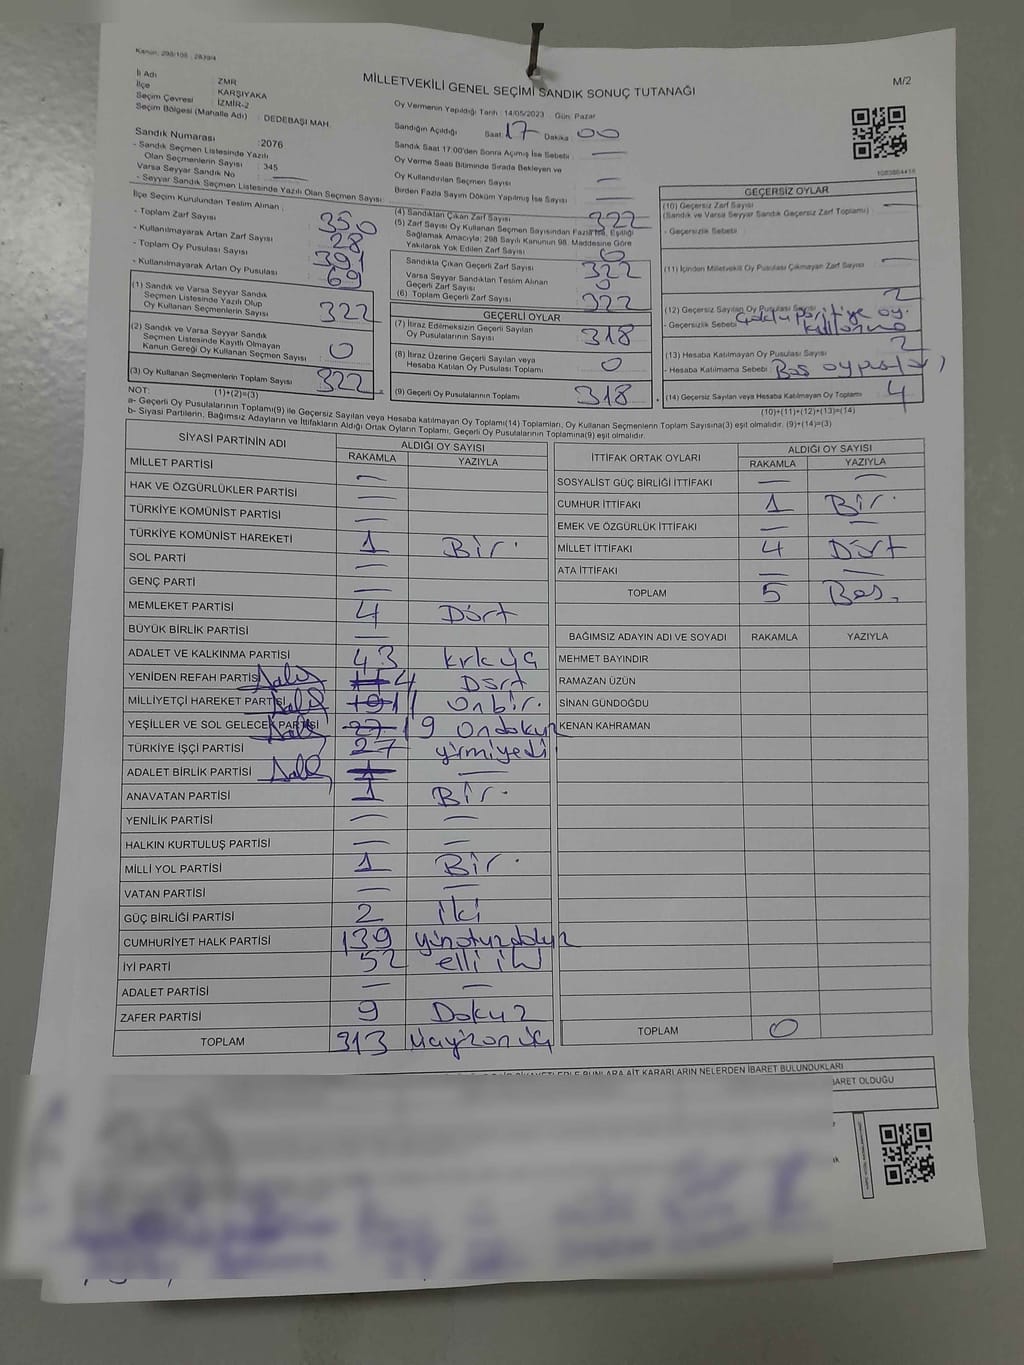 Kanun: 298/105 ; 2839/4
MİLLETVEKİLİ GENEL SEÇİMİ SANDIK SONUÇ TUTANAĞI
M/2
İl Adı : ZMR
İlçe : KARŞIYAKA
Seçim Çevresi : İZMİR-2
Seçim Bölgesi (Mahalle Adı) : DEDEBAŞI MAH.
Sandık Numarası : 2076
- Sandık Seçmen Listesinde Yazılı
Olan Seçmenlerin Sayısı : 345
Varsa Seyyar Sandık No : —
- Seyyar Sandık Seçmen Listesinde Yazılı Olan Seçmen Sayısı:
Oy Vermenin Yapıldığı Tarih : 14/05/2023 Gün: Pazar
Sandığın Açıldığı Saat: 17 Dakika : 00
Sandık Saat 17:00'den Sonra Açılmış İse Sebebi : —
Oy Verme Saati Bitiminde Sırada Bekleyen ve
Oy Kullandırılan Seçmen Sayısı : —
Birden Fazla Sayım Döküm Yapılmış İse Sayısı : —
1083884416
İlçe Seçim Kurulundan Teslim Alınan :
- Toplam Zarf Sayısı : 350
- Kullanılmayarak Artan Zarf Sayısı : 28
- Toplam Oy Pusulası Sayısı : 391
- Kullanılmayarak Artan Oy Pusulası : 69
(1) Sandık ve Varsa Seyyar Sandık
Seçmen Listesinde Yazılı Olup
Oy Kullanan Seçmenlerin Sayısı : 322
(2) Sandık ve Varsa Seyyar Sandık
Seçmen Listesinde Kayıtlı Olmayan
Kanun Gereği Oy Kullanan Seçmen Sayısı : 0
(3) Oy Kullanan Seçmenlerin Toplam Sayısı : 322
(1)+(2)=(3)
(4) Sandıktan Çıkan Zarf Sayısı : 322
(5) Zarf Sayısı Oy Kullanan Seçmen Sayısından Fazla İse, Eşitliği
Sağlamak Amacıyla; 298 Sayılı Kanunun 98. Maddesine Göre
Yakılarak Yok Edilen Zarf Sayısı : 0
Sandıkta Çıkan Geçerli Zarf Sayısı : 322
Varsa Seyyar Sandıktan Teslim Alınan
Geçerli Zarf Sayısı : 0
(6) Toplam Geçerli Zarf Sayısı : 322
GEÇERLİ OYLAR
(7) İtiraz Edilmeksizin Geçerli Sayılan
Oy Pusulalarının Sayısı : 318
(8) İtiraz Üzerine Geçerli Sayılan veya
Hesaba Katılan Oy Pusulası Toplamı : 0
(9) Geçerli Oy Pusulalarının Toplamı : 318
GEÇERSİZ OYLAR
(10) Geçersiz Zarf Sayısı
(Sandık ve Varsa Seyyar Sandık Geçersiz Zarf Toplamı) : —
- Geçersizlik Sebebi :
(11) İçinden Milletvekili Oy Pusulası Çıkmayan Zarf Sayısı : —
(12) Geçersiz Sayılan Oy Pusulası Sayısı : 2
- Geçersizlik Sebebi : Çoklu partiye oy
kullanma
(13) Hesaba Katılmayan Oy Pusulası Sayısı : 2
- Hesaba Katılmama Sebebi : Boş oy pusula
(14) Geçersiz Sayılan veya Hesaba Katılmayan Oy Toplamı : 4
(10)+(11)+(12)+(13)=(14)
NOT:
a- Geçerli Oy Pusulalarının Toplamı(9) ile Geçersiz Sayılan veya Hesaba katılmayan Oy Toplamı(14) Toplamları, Oy Kullanan Seçmenlerin Toplam Sayısına(3) eşit olmalıdır. (9)+(14)=(3)
b- Siyasi Partilerin, Bağımsız Adayların ve İttifakların Aldığı Ortak Oyların Toplamı, Geçerli Oy Pusulalarının Toplamına(9) eşit olmalıdır.
SİYASİ PARTİNİN ADI ALDIĞI OY SAYISI
RAKAMLA YAZIYLA
MİLLET PARTİSİ —
HAK VE ÖZGÜRLÜKLER PARTİSİ —
TÜRKİYE KOMÜNİST PARTİSİ —
TÜRKİYE KOMÜNİST HAREKETİ 1 Bir
SOL PARTİ —
GENÇ PARTİ —
MEMLEKET PARTİSİ 4 Dört
BÜYÜK BİRLİK PARTİSİ —
ADALET VE KALKINMA PARTİSİ 43 kırküç
YENİDEN REFAH PARTİSİ 4 Dört
MİLLİYETÇİ HAREKET PARTİSİ 11 Onbir
YEŞİLLER VE SOL GELECEK PARTİSİ 19 Ondokuz
TÜRKİYE İŞÇİ PARTİSİ 27 yirmiyedi
ADALET BİRLİK PARTİSİ —
ANAVATAN PARTİSİ 1 Bir
YENİLİK PARTİSİ — —
HALKIN KURTULUŞ PARTİSİ — —
MİLLİ YOL PARTİSİ 1 Bir
VATAN PARTİSİ — —
GÜÇ BİRLİĞİ PARTİSİ 2 iki
CUMHURİYET HALK PARTİSİ 139 yüzotuzdokuz
İYİ PARTİ 52 elli iki
ADALET PARTİSİ — —
ZAFER PARTİSİ 9 Dokuz
TOPLAM 313 üçyüzonüç
İTTİFAK ORTAK OYLARI ALDIĞI OY SAYISI
RAKAMLA YAZIYLA
SOSYALİST GÜÇ BİRLİĞİ İTTİFAKI — —
CUMHUR İTTİFAKI 1 Bir
EMEK VE ÖZGÜRLÜK İTTİFAKI — —
MİLLET İTTİFAKI 4 Dört
ATA İTTİFAKI — —
TOPLAM 5 Beş
BAĞIMSIZ ADAYIN ADI VE SOYADI RAKAMLA YAZIYLA
MEHMET BAYINDIR
RAMAZAN ÜZÜN
SİNAN GÜNDOĞDU
KENAN KAHRAMAN
TOPLAM 0
BUNLARA AİT KARARLARIN NELERDEN İBARET BULUNDUKLARI
İBARET OLDUĞU